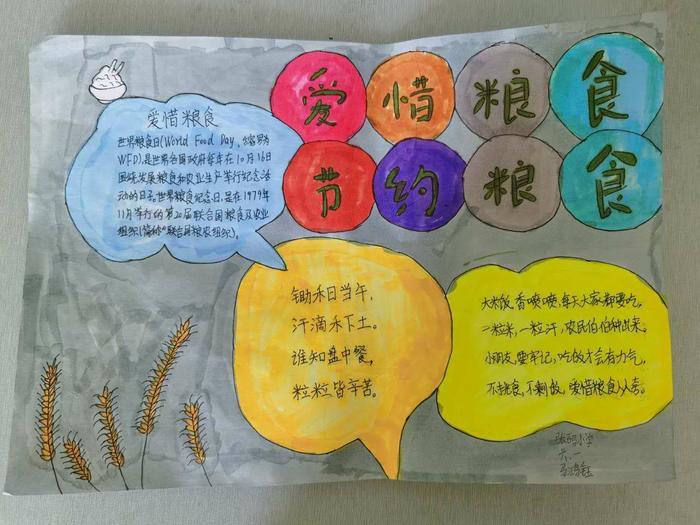 爱惜粮食
节约粮食
爱惜粮食
世界粮食日(World Food Day,缩写为
WFD),是世界各国政府每年在10月16日
围绕发展粮食和农业生产举行纪念活
动的日子。世界粮食纪念日,是在1979年
11月举行的第20届联合国粮食及农业
组织(简称“联合国粮农组织).
锄禾日当午,
汗滴禾下土。
谁知盘中餐,
粒粒皆辛苦。
大米饭,香喷喷,每天大家都要吃。
一粒米,一粒汗,农民伯伯种出来。
小朋友,要牢记,吃饭才会有力气,
不挑食,不剩饭,爱惜粮食人人夸。
小学
六.一